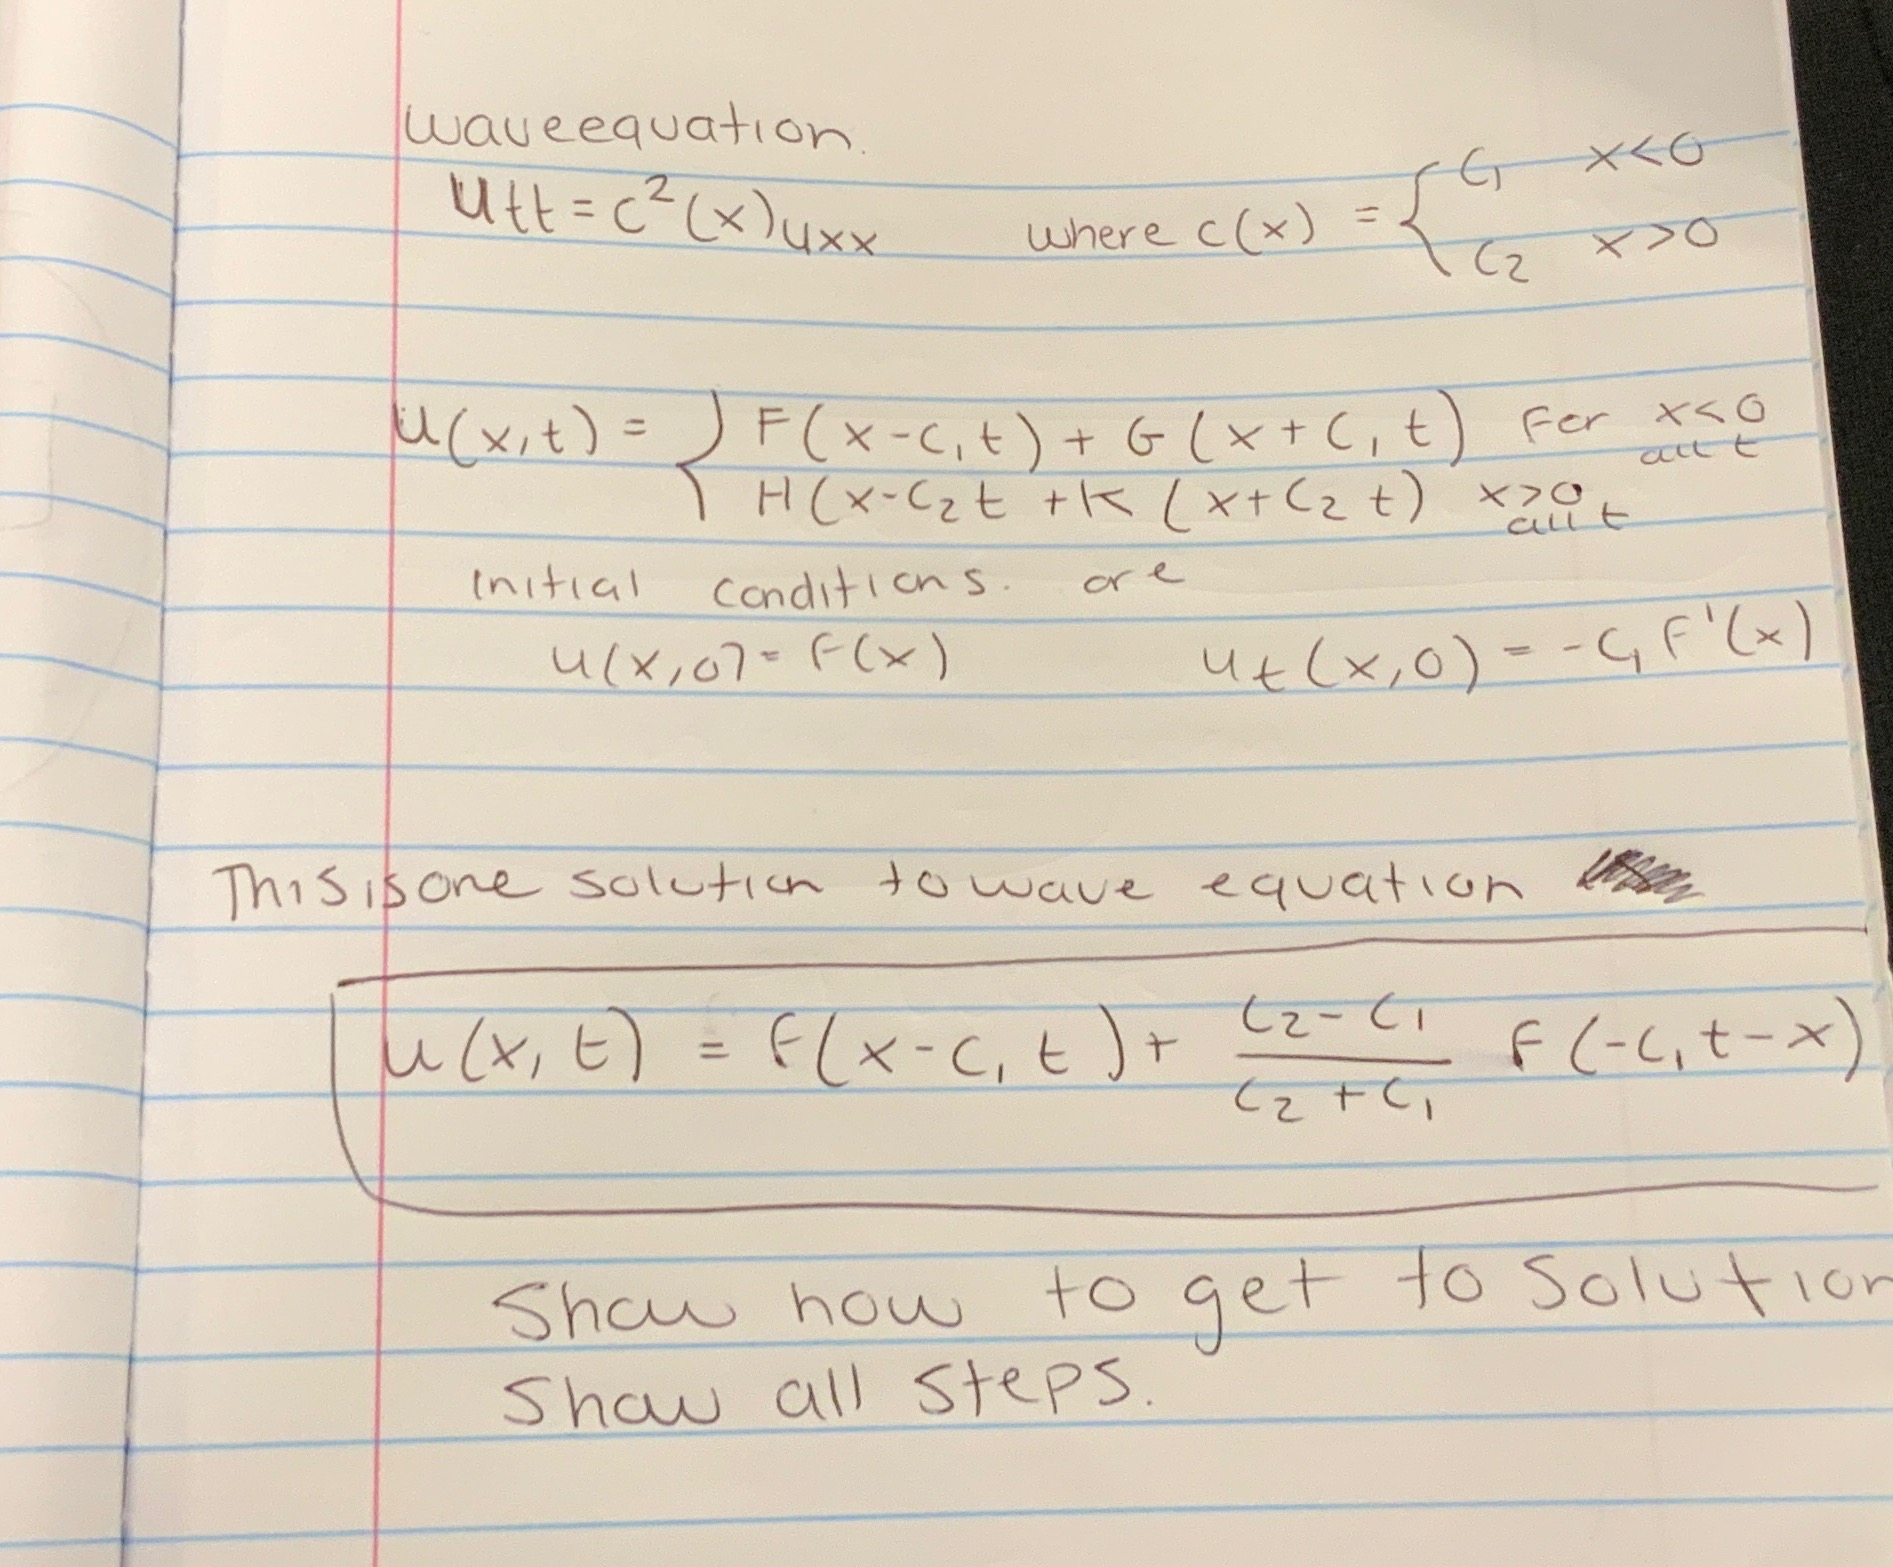 waveequation.
Utt = c²(x)uxx where c(x) = { C₁ x<0
C₂ x>0
U(x,t) = { F(x-C₁t) + G(x+C₁t) For x<0 all t
H(x-C₂t + K(x+C₂t) x>0 all t
initial conditions. are
u(x,0) = F(x) ut(x,0) = -C₁F'(x)
This is one solution to wave equation
u(x,t) = F(x-C₁t) + (C₂-C₁)/(C₂+C₁) F(-C₁t-x)
Show how to get to solution
Show all steps.